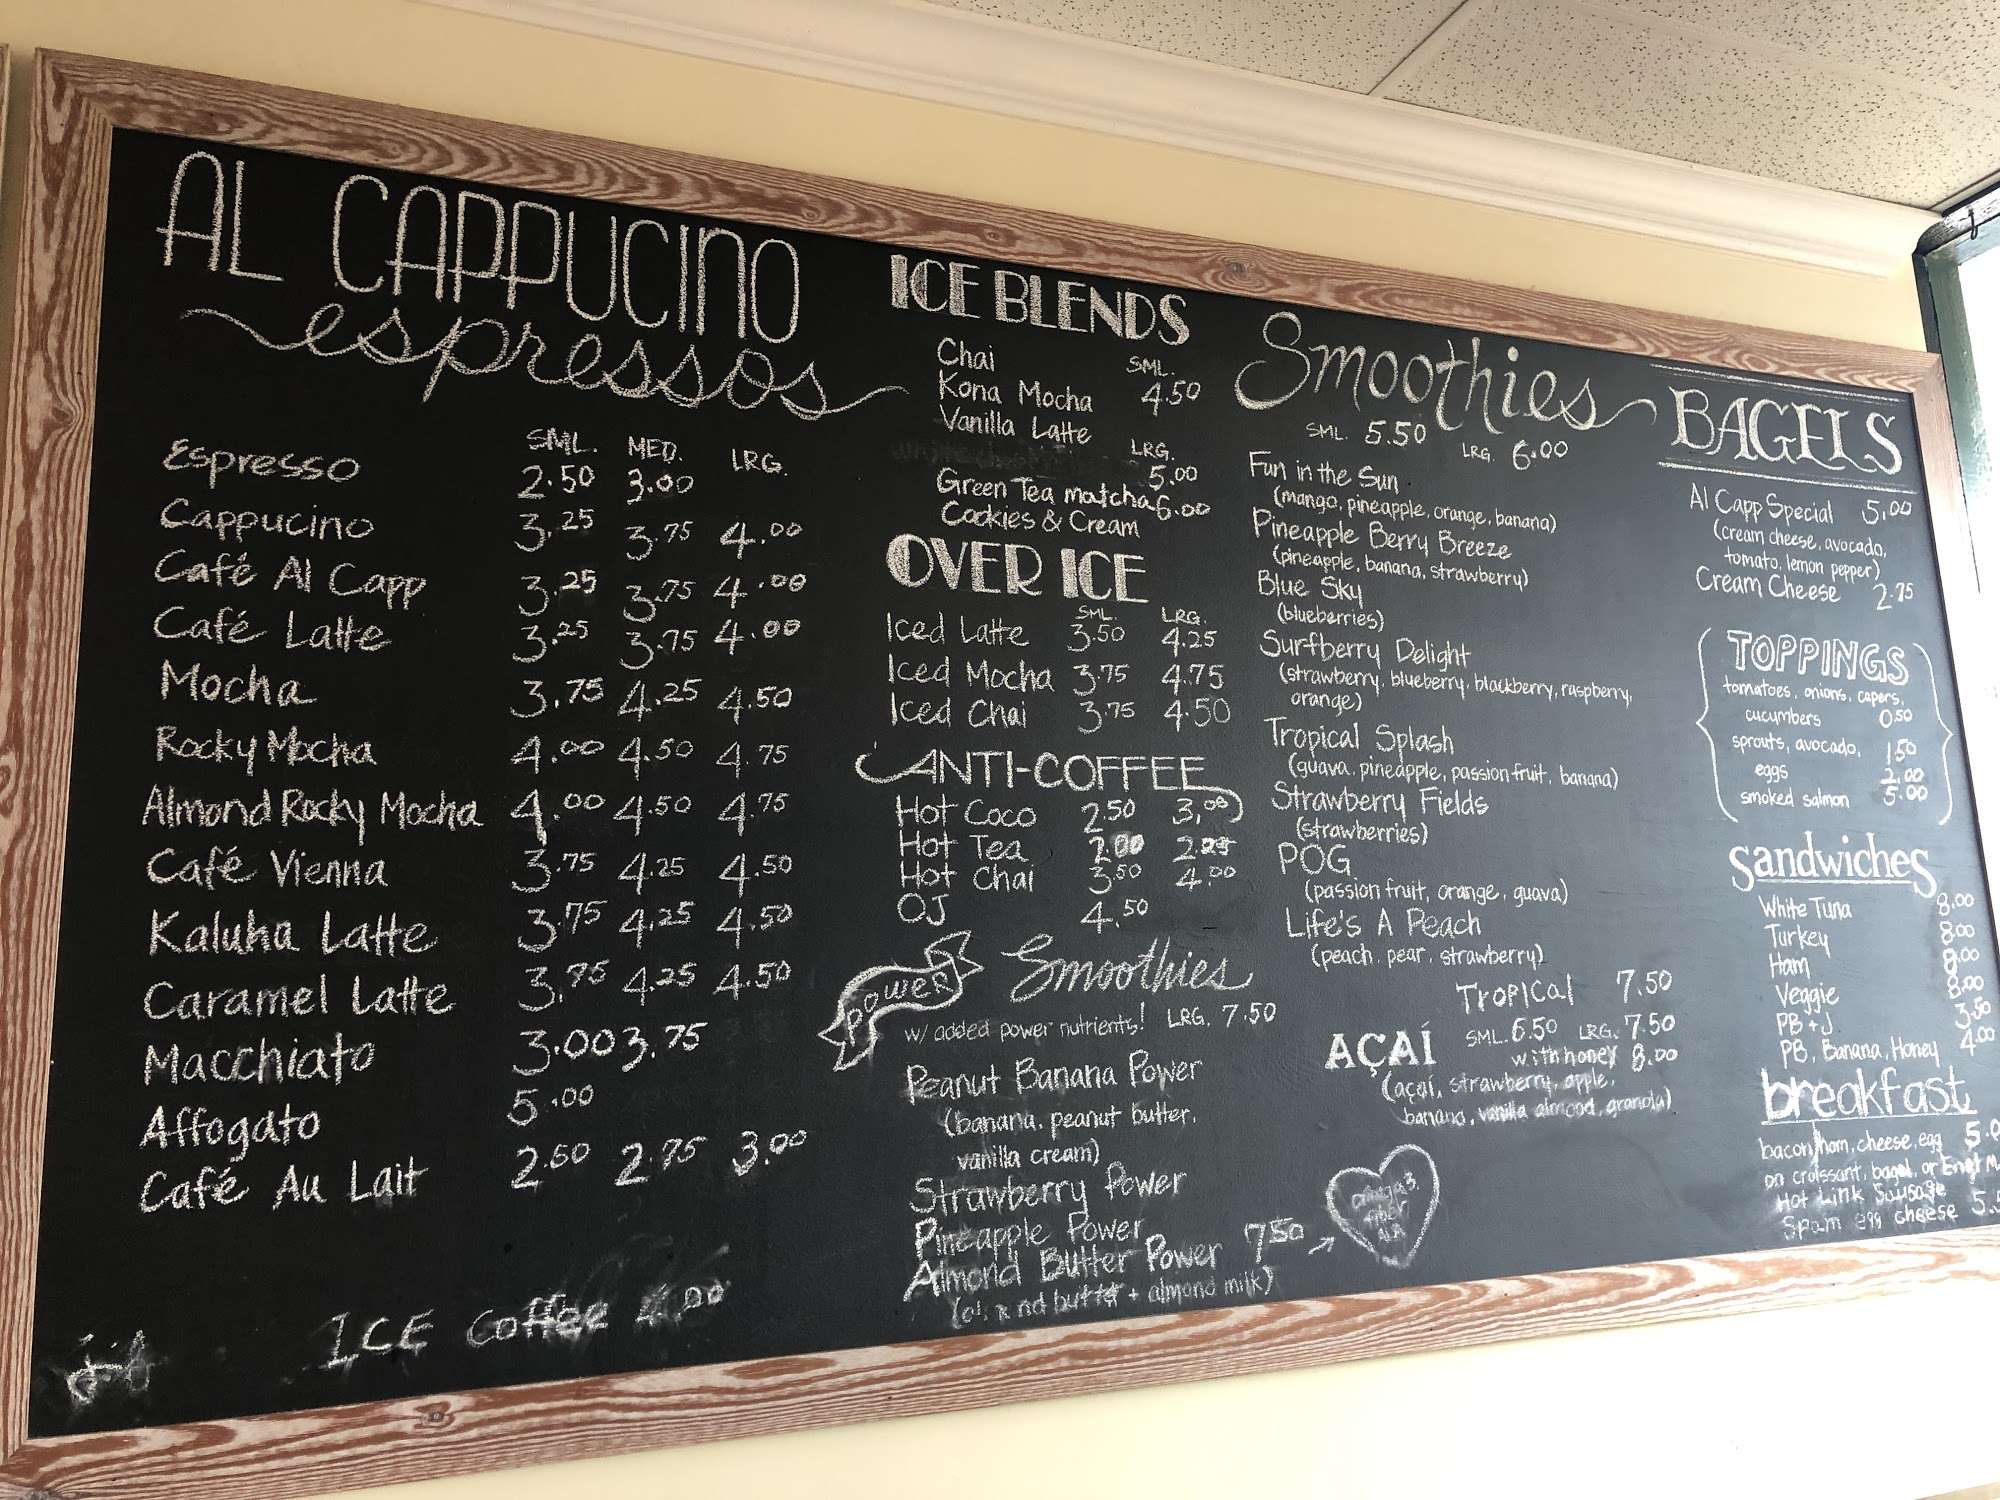 AL CAPPUCINO
espressos
SML. MED. LRG.
Espresso 2.50 3.00
Cappucino 3.25 3.75 4.00
Café Al Capp 3.25 3.75 4.00
Café Latte 3.25 3.75 4.00
Mocha 3.75 4.25 4.50
Rocky Mocha 4.00 4.50 4.75
Almond Rocky Mocha 4.00 4.50 4.75
Café Vienna 3.75 4.25 4.50
Kaluha Latte 3.75 4.25 4.50
Caramel Latte 3.75 4.25 4.50
Macchiato 3.00 3.75
Affogato 5.00
Café Au Lait 2.50 2.75 3.00
ICE Coffee
ICE BLENDS
Chai SML.
Kona Mocha 4.50
Vanilla Latte
LRG.
5.00
Green Tea matcha 6.00
Cookies & Cream
OVER ICE
SML. LRG.
Iced Latte 3.50 4.25
Iced Mocha 3.75 4.75
Iced Chai 3.75 4.50
ANTI-COFFEE
Hot Coco 2.50 3.00
Hot Tea 2.00
Hot Chai 3.50 4.00
OJ 4.50
POWER Smoothies
w/ added power nutrients! LRG. 7.50
Peanut Banana Power
(banana, peanut butter,
vanilla cream)
Strawberry Power
Pineapple Power
Almond Butter Power 7.50
+ almond milk)
Smoothies
SML. 5.50 LRG. 6.00
Fun in the Sun
(mango, pineapple, orange, banana)
Pineapple Berry Breeze
(pineapple, banana, strawberry)
Blue Sky
(blueberries)
Surfberry Delight
(strawberry, blueberry, blackberry, raspberry,
orange)
Tropical Splash
(guava, pineapple, passion fruit, banana)
Strawberry Fields
(strawberries)
POG
(passion fruit, orange, guava)
Life's A Peach
(peach, pear, strawberry)
Tropical 7.50
AÇAÍ SML. 6.50 LRG. 7.50
with honey 8.00
(açaí, strawberry, apple,
banana, vanilla almond, granola)
BAGELS
Al Capp Special 5.00
(cream cheese, avocado,
tomato, lemon pepper)
Cream Cheese 2.75
TOPPINGS
tomatoes, onions, capers,
cucumbers 0.50
sprouts, avocado, 1.50
eggs 2.00
smoked salmon 5.00
Sandwiches
White Tuna 8.00
Turkey 8.00
Ham 8.00
Veggie 8.00
PB + J 3.50
PB, Banana, Honey 4.00
breakfast
bacon/ham, cheese, egg
on croissant, bagel, or
Hot Link Sausage
Spam egg cheese